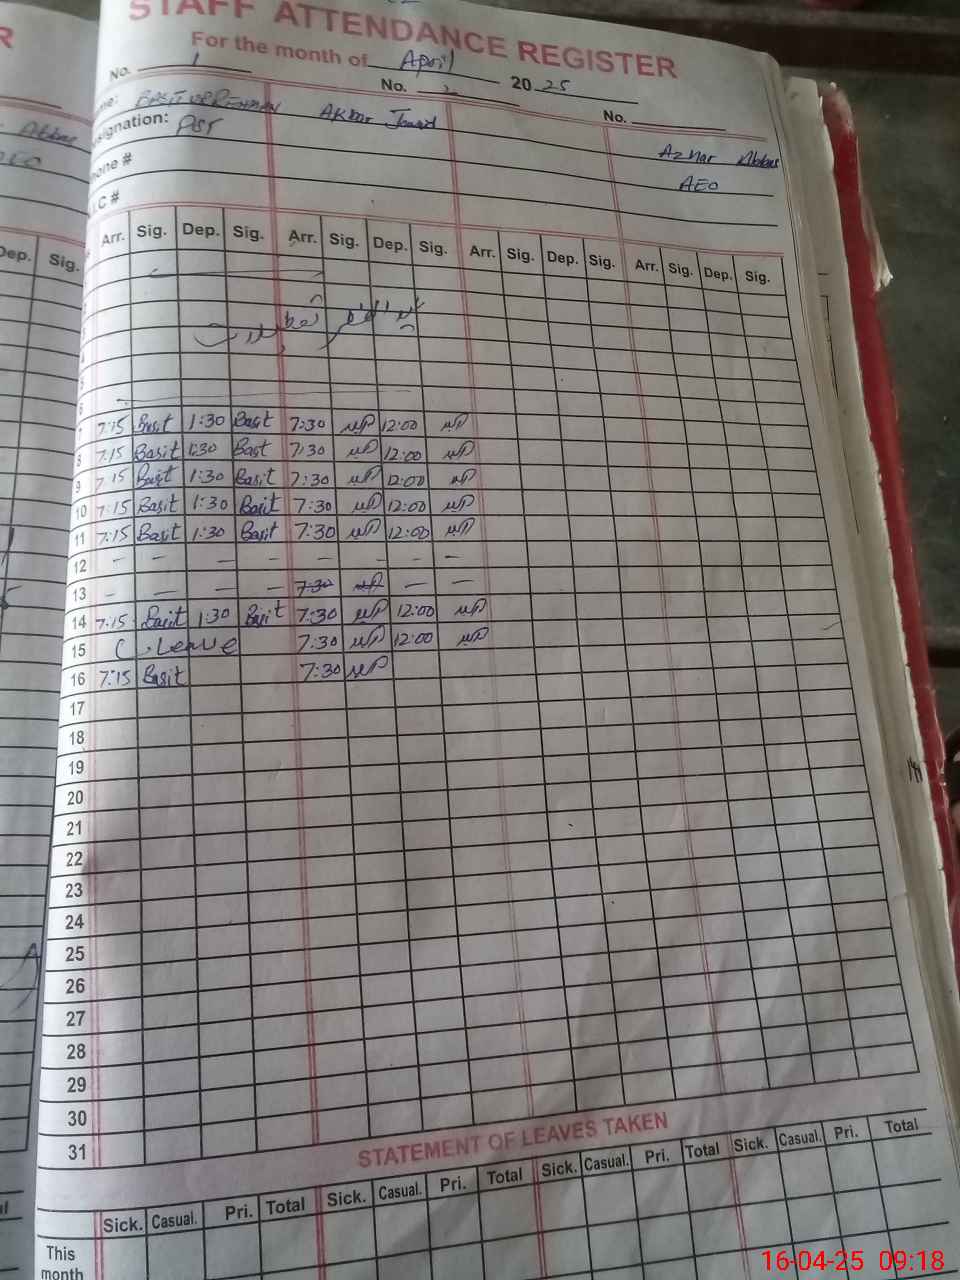 STAFF ATTENDANCE REGISTER
For the month of April 2025
No. 1 No. 2 No.
BASIT UR REHMAN Akbar Azhar Abbas
signation: PST AEO
one #
I.C #
Arr. Sig. Dep. Sig. Arr. Sig. Dep. Sig. Arr. Sig. Dep. Sig. Arr. Sig. Dep. Sig.
7 7:15 Basit 1:30 Basit 7:30 12:00
8 7:15 Basit 1:30 Basit 7:30 12:00
9 7:15 Basit 1:30 Basit 7:30 12:00
10 7:15 Basit 1:30 Basit 7:30 12:00
11 7:15 Basit 1:30 Basit 7:30 12:00
12 - - - - - - - -
13 - - - - 7:30 - -
14 7:15 Basit 1:30 Basit 7:30 12:00
15 C. Leave 7:30 12:00
16 7:15 Basit 7:30
17
18
19
20
21
22
23
24
25
26
27
28
29
30
31
STATEMENT OF LEAVES TAKEN
Sick. Casual. Pri. Total Sick. Casual. Pri. Total Sick. Casual. Pri. Total Sick. Casual. Pri. Total
This
month
16-04-25 09:18